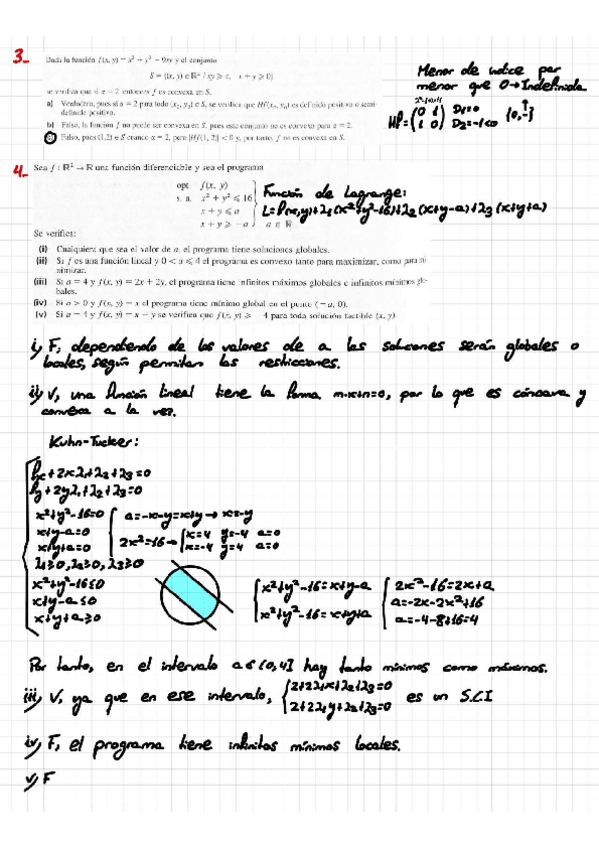 3-
Dada la función f(x, y) = x² + y² − axy y el conjunto
S = {(x, y) ∈ ℝ² / xy ⩾ c, x + y ⩾ 0}
se verifica que si a = 2 entonces f es convexa en S.
a) Verdadero, pues si a = 2 para todo (x₀, y₀) ∈ S, se verifica que Hf(x₀, y₀) es definida positiva o semi-
definida positiva.
b) Falso, la función f no puede ser convexa en S, pues este conjunto no es convexo para a = 2.
Falso, pues (1,2) ∈ S cuando a = 2, pero |Hf(1, 2)| < 0 y, por tanto, f no es convexa en S.
Menor de índice par
menor que 0→Indefinida
D₁=0
D₂=-1<0
4-
Sea f : ℝ² → ℝ una función diferenciable y sea el programa
opt f(x, y)
s. a. x² + y² ⩽ 16
x + y ⩽ a
x + y ⩾ −a
a ∈ ℝ
Función de Lagrange:
L=f(x,y)+λ₁(x²+y²-16)+λ₂(x+y-a)+λ₃(x+y+a)
Se verifica:
(i) Cualquiera que sea el valor de a, el programa tiene soluciones globales.
(ii) Si f es una función lineal y 0 < a ⩽ 4 el programa es convexo tanto para maximizar, como para mi-
nimizar.
(iii) Si a = 4 y f(x, y) = 2x + 2y, el programa tiene infinitos máximos globales e infinitos mínimos glo-
bales.
(iv) Si a > 0 y f(x, y) = x el programa tiene mínimo global en el punto (−a, 0).
(v) Si a = 4 y f(x, y) = x − y se verifica que f(x, y) ⩾ 4 para toda solución factible (x, y)
i) F, dependiendo de los valores de a las soluciones serán globales o
locales, según permitan las restricciones.
ii) V, una función lineal tiene la forma m·x+n=0, por lo que es cóncava y
convexa a la vez.
Kuhn-Tucker:
fx+2xλ₁+λ₂+λ₃=0
fy+2yλ₁+λ₂+λ₃=0
x²+y²-16=0
x+y-a=0
x+y+a=0
λ₁≥0, λ₂≥0, λ₃≥0
x²+y²-16≤0
x+y-a≤0
x+y+a≥0
a=-x-y=x+y → x=-y
2x²=16→
x=4 y=-4 a=0
x=-4 y=4 a=0
x²+y²-16=x+y-a
x²+y²-16=x+y+a
2x²-16=2x+a
a=-2x-2x²+16
a=-4-8+16=4
Por tanto, en el intervalo a∈(0,4] hay tanto mínimos como máximos.
iii) V, ya que en ese intervalo,
2+2λ₁x+λ₂+λ₃=0
2+2λ₁y+λ₂+λ₃=0
es un S.C.I
iv) F, el programa tiene infinitos mínimos locales.
v) F